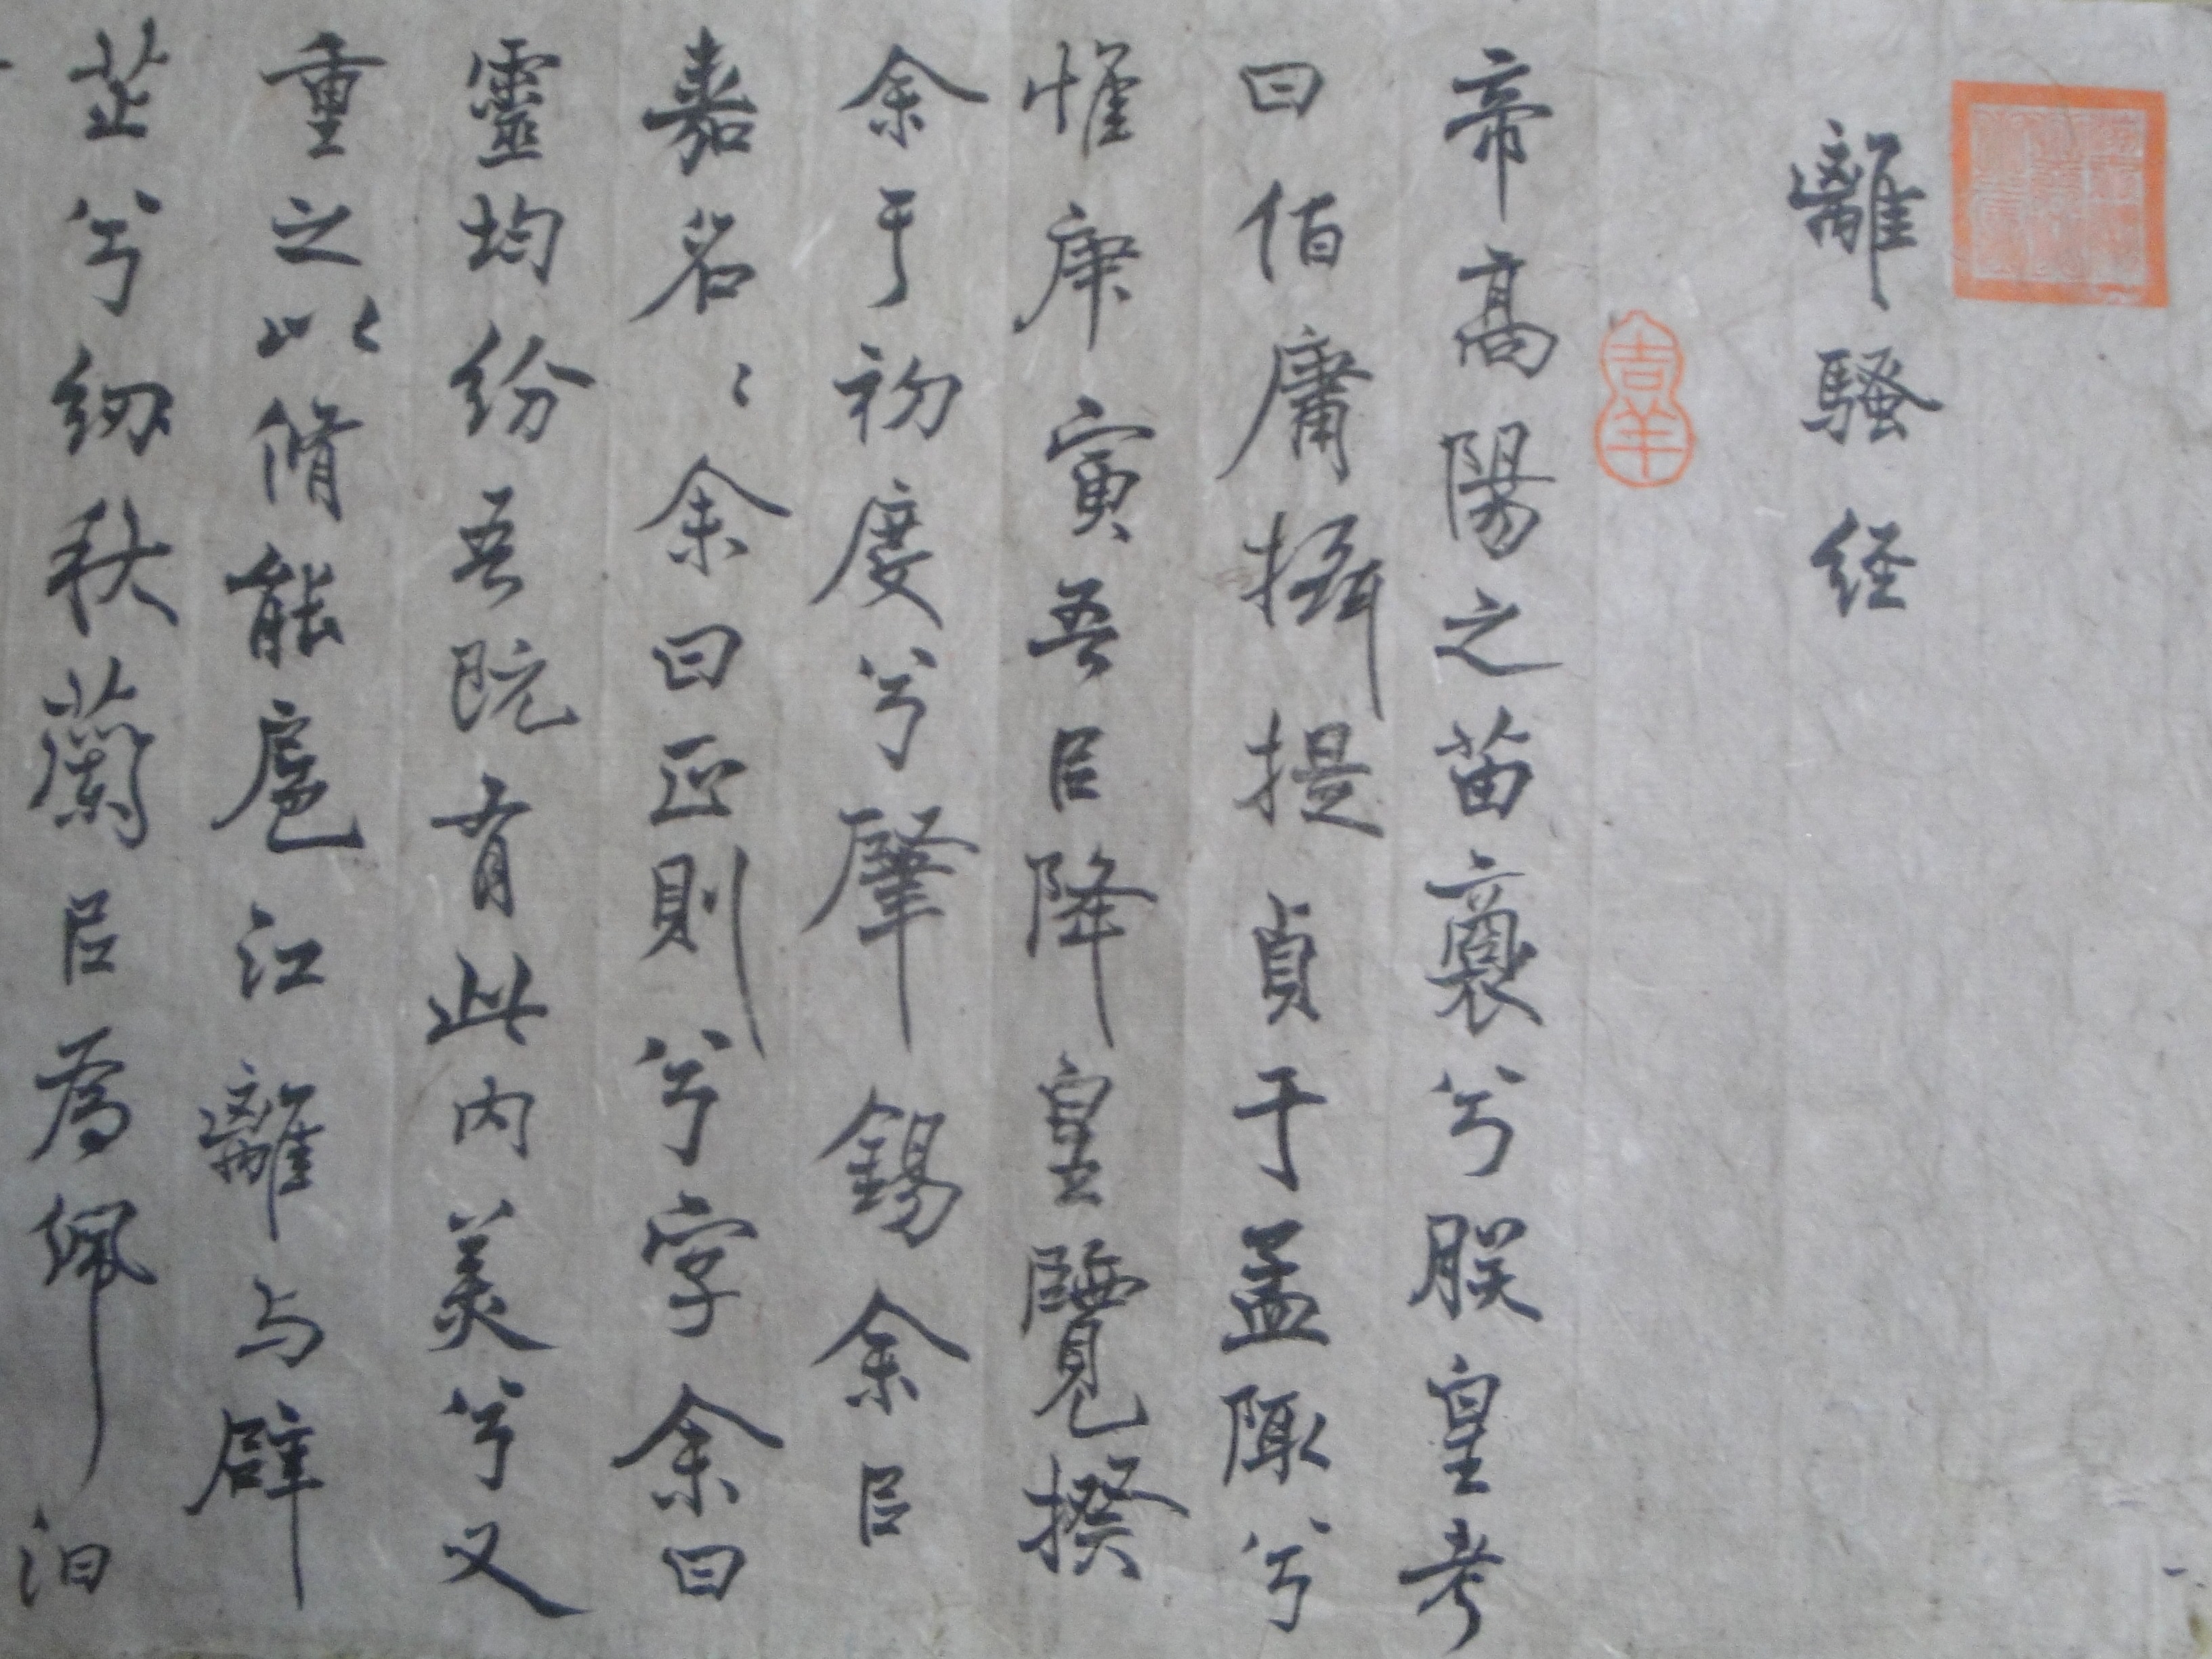 離騷経
吉羊
帝高陽之苗裔兮朕皇考
曰伯庸攝提貞于孟陬兮
惟庚寅吾㠯降皇覽揆
余于初度兮肇錫余㠯
嘉名〻余曰正則兮字余曰
靈均紛吾既有此内美兮又
重之以脩能扈江離与辟
芷兮紉秋蘭㠯為佩汩